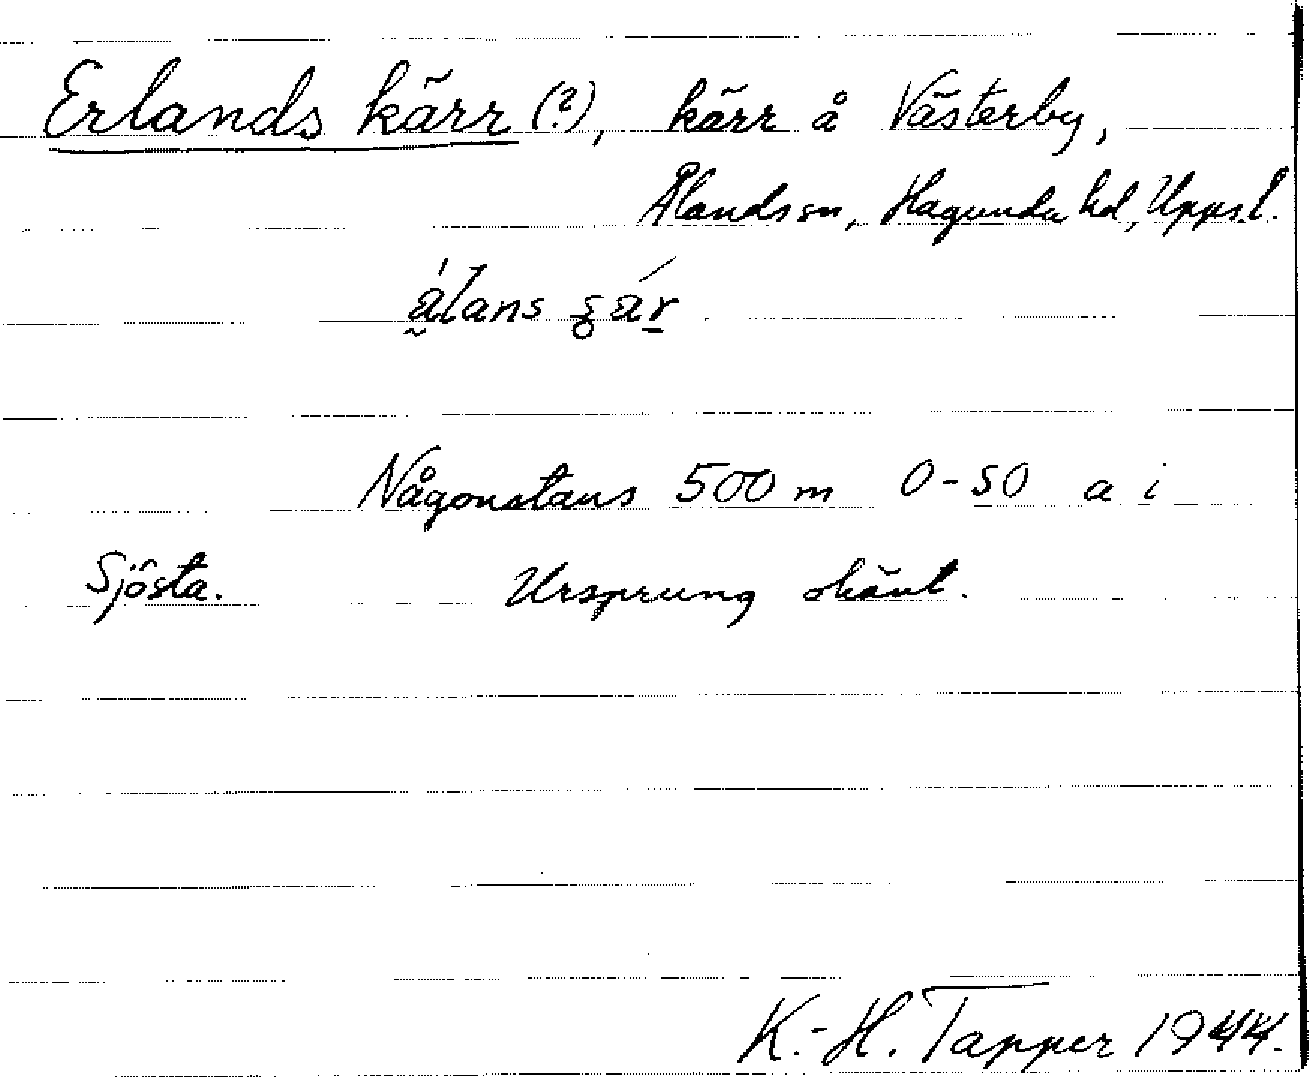 Erlands kärr (?), kärr å Västerby,
Ålands sn, Hagunda hd, Upps. l.
Någonstans 500 m 0-50 a i
Sjösta. Ursprung okänt.
K.-H. Tapper 1944.